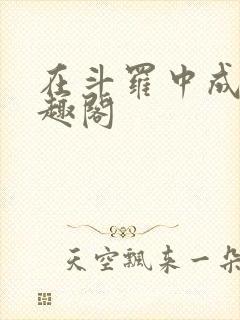 在斗罗中成
趣阁
天空飘来一朵